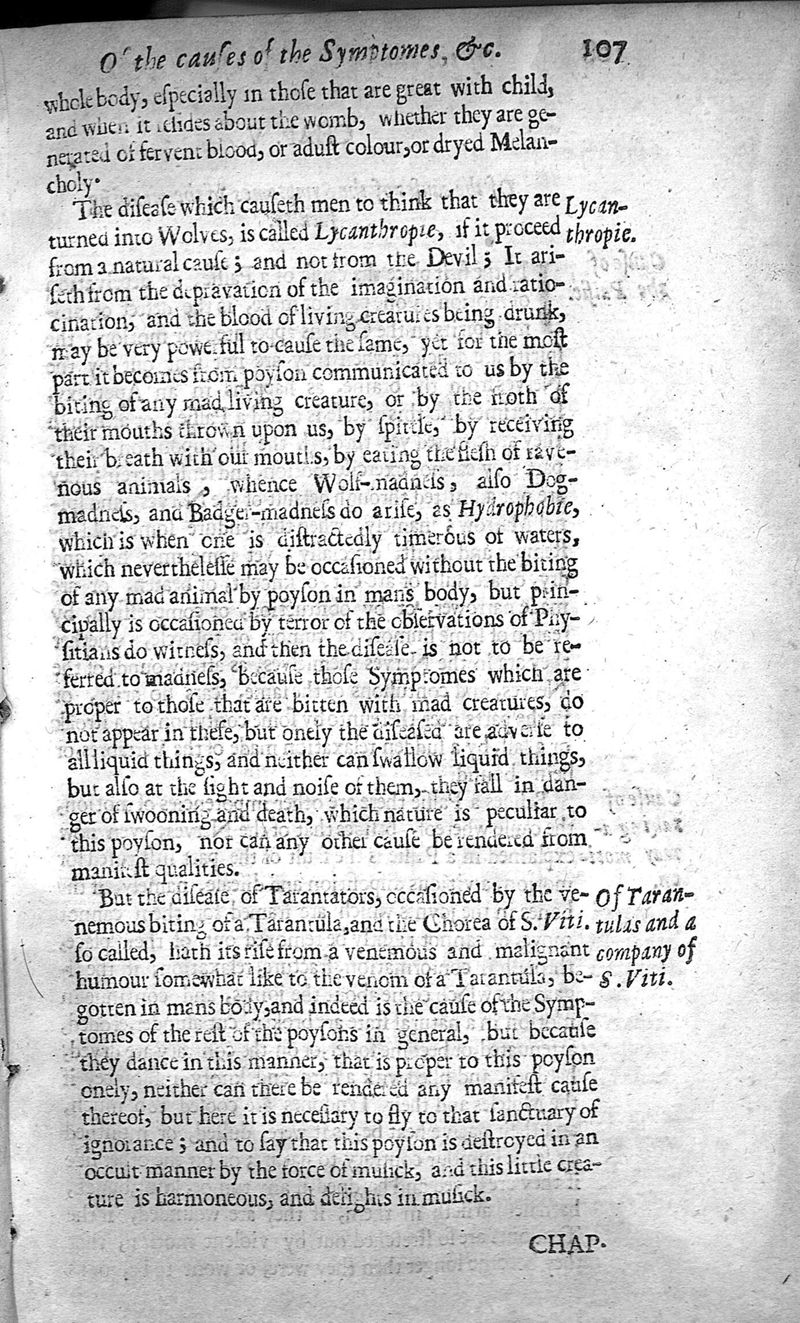 Of the cauſes of the Symptomes, &c. 107
whole body, eſpecially in thoſe that are great with child,
and when it reſides about the womb, whether they are ge-
nerated of fervent blood, or aduſt colour,or dryed Melan-
choly.
The diſeaſe which cauſeth men to think that they are Lycan-
turned into Wolves, is called Lycanthropie, if it proceed thropie.
from a natural cauſe ; and not from the Devil ; It ari-
ſeth from the depravation of the imagination and ratio-
cination, and the blood of living creatures being drunk,
may be very powerful to cauſe the ſame, yet for the moſt
part it becomes from poyſon communicated to us by the
biting of any mad living creature, or by the froth of
their mouths thrown upon us, by ſpittle, by receiving
their breath with our mouths, by eating the fleſh of rave-
nous animals , whence Wolf-madneſs, alſo Dog-
madneſs, and Badger-madneſs do ariſe, as Hydrophobie,
which is when one is diſtractedly timerous of waters,
which nevertheleſſe may be occaſioned without the biting
of any mad animal by poyſon in mans body, but prin-
cipally is occaſioned by terror of the obſervations of Phy-
ſitians do witneſs, and then the diſeaſe is not to be re-
ferred to madneſs, becauſe thoſe Symptomes which are
proper to thoſe that are bitten with mad creatures, do
not appear in theſe, but onely the diſeaſed are adverſe to
all liquid things, and neither can ſwallow liquid things,
but alſo at the ſight and noiſe of them, they fall in dan-
ger of ſwooning and death, which nature is peculiar to
this poyſon, nor can any other cauſe be rendered from
manifeſt qualities.
But the diſeaſe of Tarantators, occaſioned by the ve- Of Taran-
nemous biting of a Tarantula,and the Chorea of S. Viti. tulas and a
ſo called, hath its riſe from a venemous and malignant company of
humour ſomewhat like to the venom of a Tarantula, be- S. Viti.
gotten in mans body,and indeed is the cauſe of the Symp-
tomes of the reſt of the poyſons in general, but becauſe
they dance in this manner, that is proper to this poyſon
onely, neither can there be rendered any manifeſt cauſe
thereof, but here it is neceſſary to fly to that ſanctuary of
ignorance ; and to ſay that this poyſon is deſtroyed in an
occult manner by the force of muſick, and this little crea-
ture is harmoneous, and delights in muſick.
CHAP.